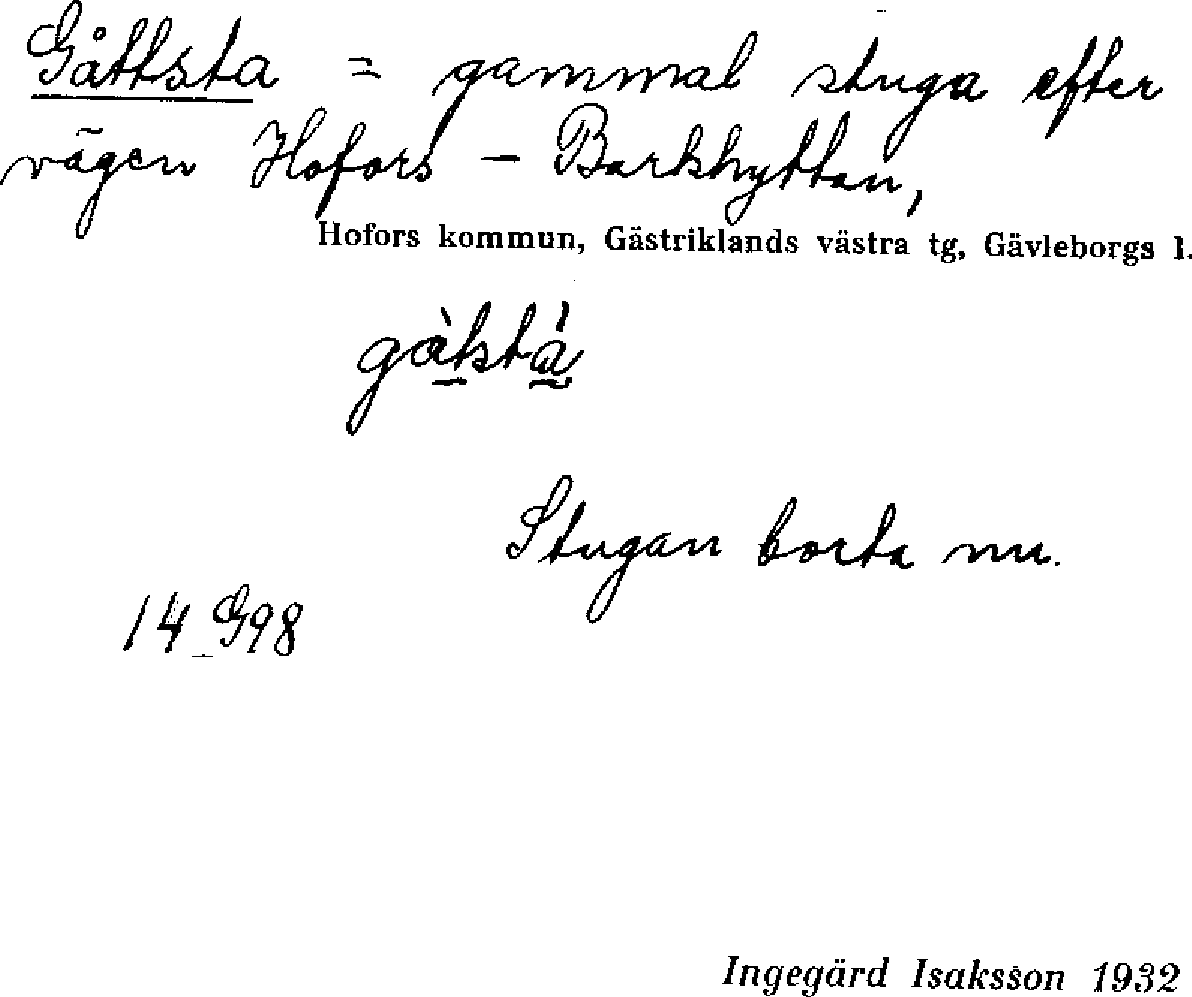 Gåttsta = gammal stuga efter
vägen Hofors – Barkhyttan,
Hofors kommun, Gästriklands västra tg, Gävleborgs l.
Stugan borta nu.
14 G98
Ingegärd Isaksson 1932